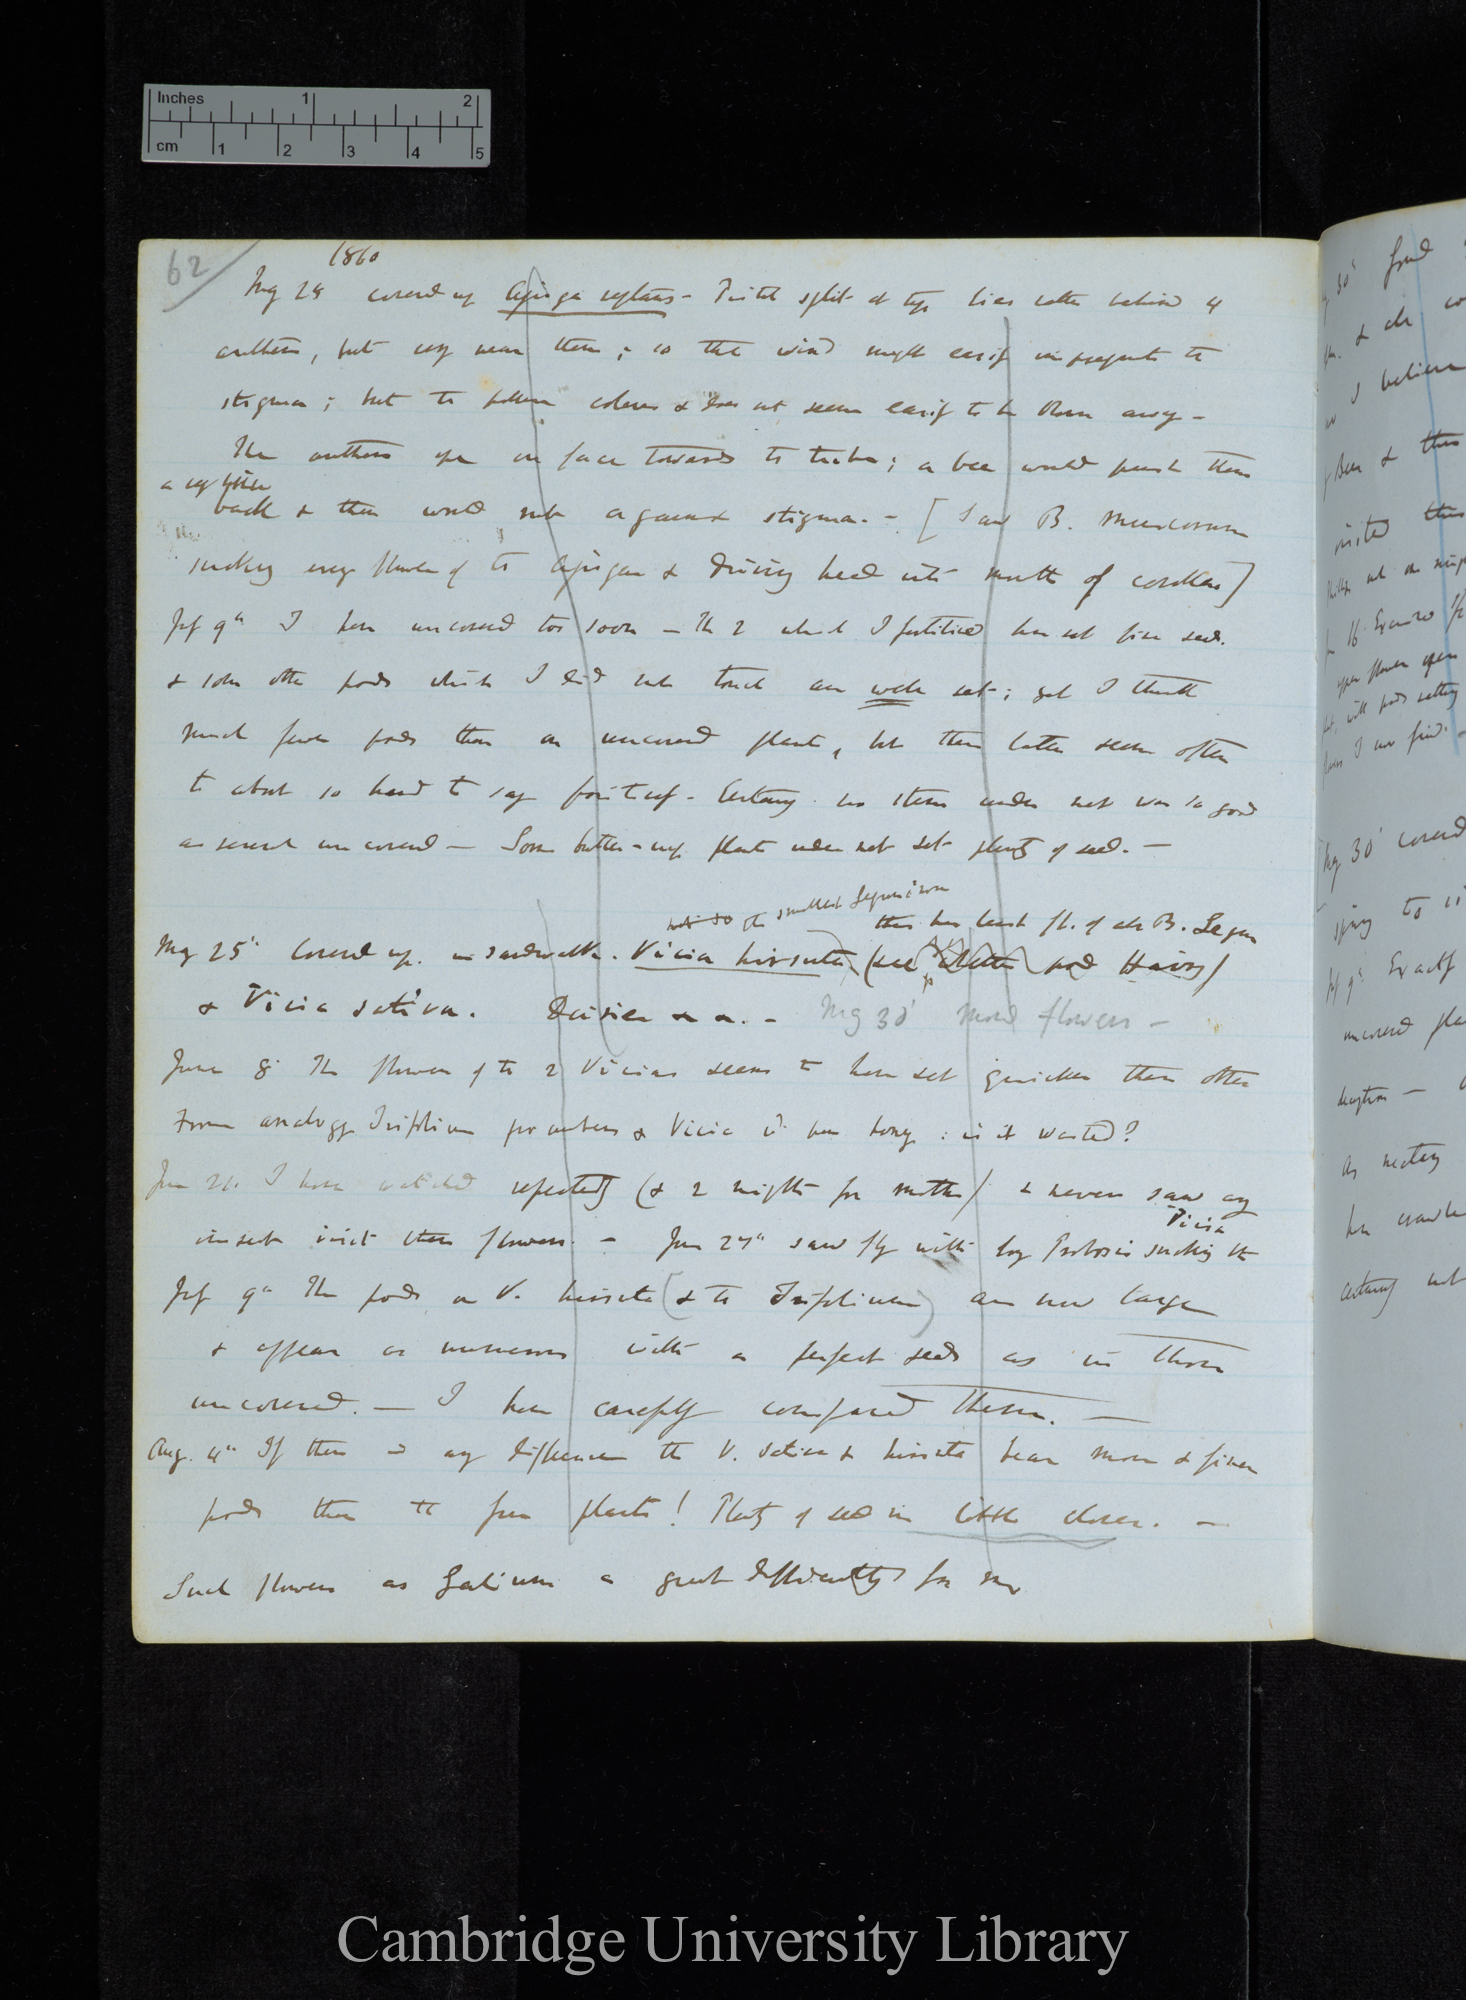 Inches 1 2
cm 1 2 3 4 5
62
1860
May 24 covered up Ajuga reptans - Pistil split at top lies rather behind 4
anthers, but very near them; so that wind might easily impregnate the
stigma; but the pollen coheres & does not seem easily to be blown away -
The anthers open on face towards the tube; a bee would push them
a very little
back & then would rub against stigma. - [I saw B. muscorum
sucking every flower of the Ajuga & driving head into mouth of corolla]
July 9th I have uncovered too soon - The 2 which I fertilised have set fine seed.
& some other pods which I did not touch are well set; yet I think
much fewer pods than on uncovered plant, but these latter seem often
to abort so hard to say positively - Certainly no stem under net was so good
as several uncovered - Some butter-cup plants under net set plenty of seed. -
not so the smallest Leguminosae
this has least fl. of all B. Legum
May 25th Covered up in sandwalk. Vicia hirsuta (see whether pod Hairy)
& Vicia sativa. Daisies - May 30th More flowers -
June 8. The flowers of the 2 Vicias seem to have set quicker than other
From analogy Trifolium procumbens & Vicia : is it wasted?
June 21. I have watched repeatedly (& 2 nights for moths) & never saw any
Vicia
insect visit these flowers. - June 27th saw fly with long Proboscis sucking the
July 9th The pods on V. hirsuta (& the Trifolium) are now large
& appear as numerous with as perfect seeds as in those
uncovered. - I have carefully compared them. -
Aug. 4th If there is any difference the V. sativa & hirsuta bear more & finer
pods than the free plants! Plenty of seed in little clover. -
Such flowers as Galium a great difficulty for me
30th
& all
I believe
Bees & this
visited this
flowers open
with pods setting
May 30th covered
July 9th Exactly
uncovered
As nectary
certainly not
Cambridge University Library